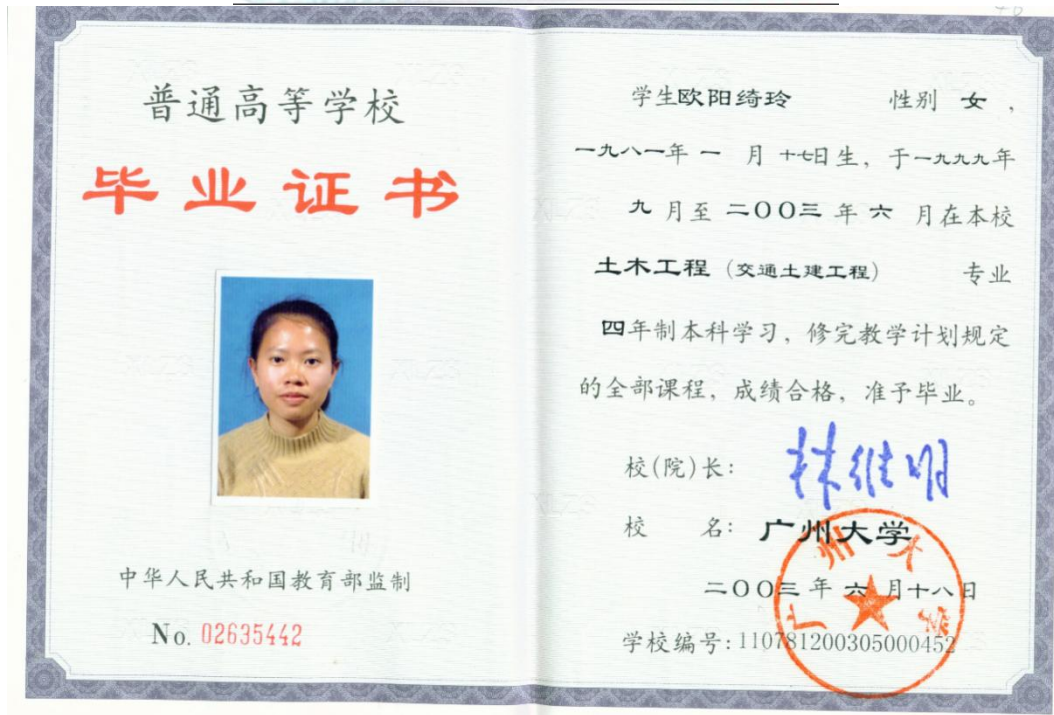 普通高等学校
毕业证书
中华人民共和国教育部监制
No. 02635442
学生欧阳绮玲 性别 女，
一九八一年 一 月 十七日生，于一九九九年
九 月至 二〇〇三 年 六 月在本校
土木工程（交通土建工程） 专业
四年制本科学习，修完教学计划规定
的全部课程，成绩合格，准予毕业。
校(院)长：林维明
校 名：广州大学
二〇〇三 年 六 月十八日
学校编号:110781200305000452
广州大学